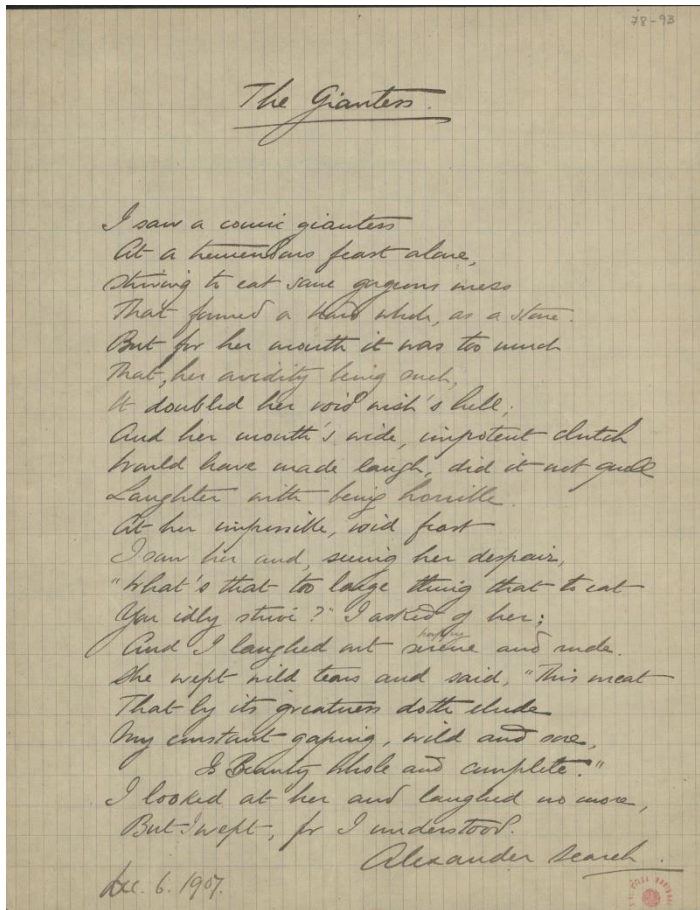 78-93
The Giantess.
I saw a comic giantess
At a tremendous feast alone,
Striving to eat some gorgeous mess
That formed a hard whole, as a stone.
But for her mouth it was too much
That, her avidity being such,
It doubled her void wish's hell;
And her mouth's wide, impotent clutch
Would have made laugh, did it not quell
Laughter with being horrible.
At her impossible, void feast
I saw her and, seeing her despair,
"What's that too large thing that to eat
You idly strive?" I asked of her;
And I laughed out serene and rude.
She wept wild tears and said, "This meat
That by its greatness doth elude
My constant gaping, wild and sore,
Is Beauty whole and complete."
I looked at her and laughed no more,
But I wept, for I understood.
Alexander Search.
Dec. 6. 1907.